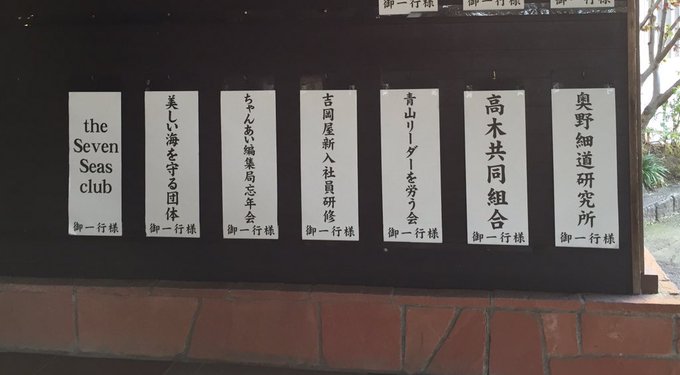 御一行様
御一行様
御一行様
奥野細道研究所
御一行様
高木共同組合
御一行様
青山リーダーを労う会
御一行様
吉岡屋新入社員研修
御一行様
ちゃんあい編集局忘年会
御一行様
美しい海を守る団体
御一行様
the
Seven
Seas
club
御一行様